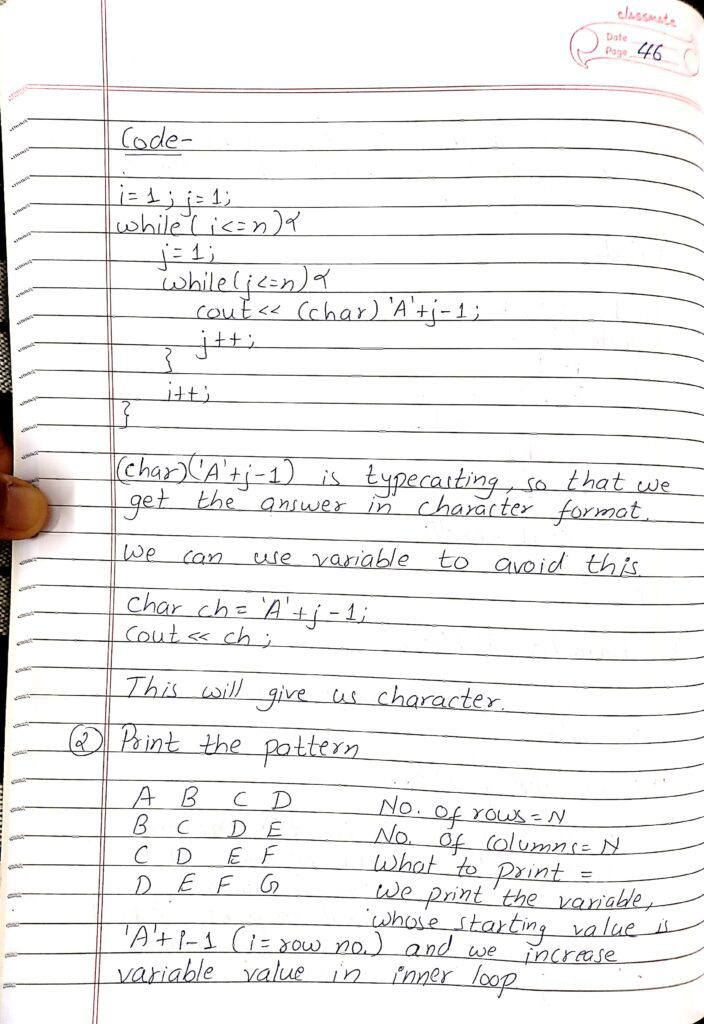 classmate
Date
Page 46
Code-
i=1; j=1;
while(i<=n){
j=1;
while(j<=n){
cout << (char) 'A'+j-1;
j++;
}
i++;
}
(char)('A'+j-1) is typecasting, so that we
get the answer in character format.
We can use variable to avoid this.
Char ch = 'A'+j-1;
Cout << ch;
This will give us character.
② Print the pattern
A B C D No. of rows = N
B C D E No. of columns = N
C D E F What to print =
D E F G We print the variable,
whose starting value is
'A'+i-1 (i = row no.) and we increase
variable value in inner loop